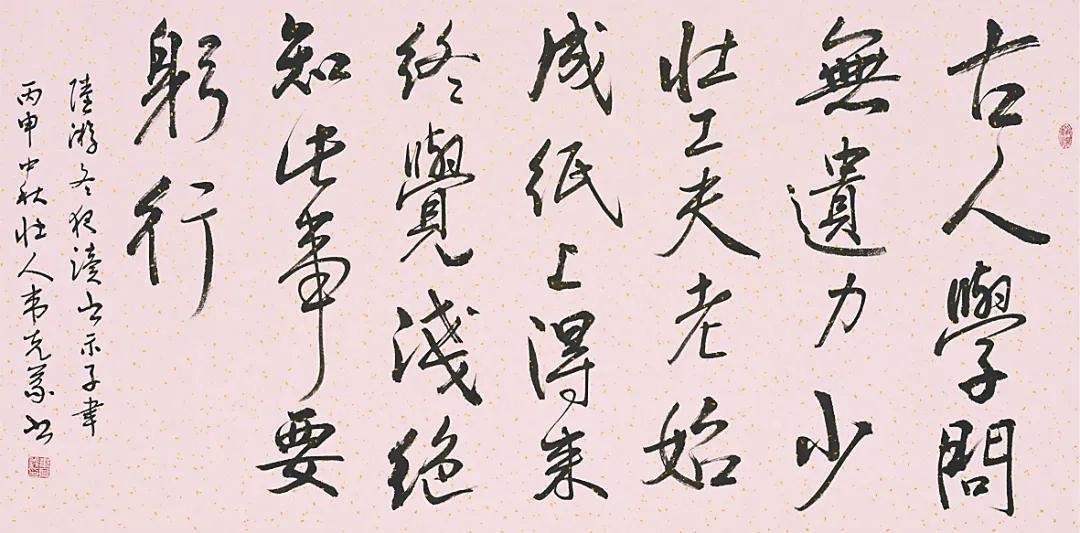 古人學問
無遺力少
壯工夫老始
成紙上得来
終覺淺絕
知此事要
躬行
陸游冬夜讀书示子聿
丙申中秋壯人韦克義书